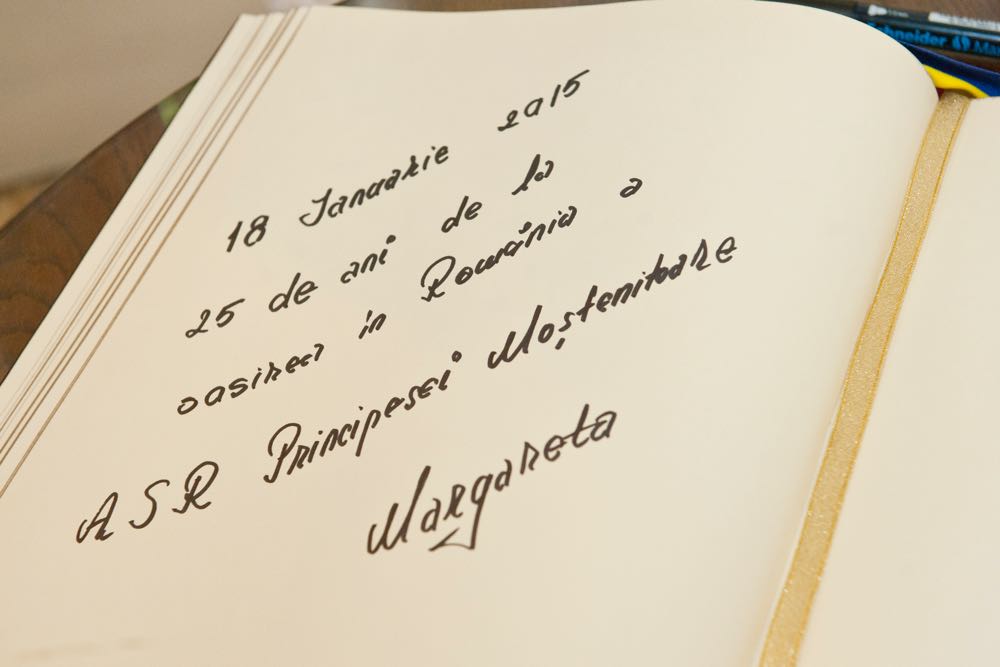 Schneider
18 Ianuarie 2015
25 de ani de la
oasirea în România a
A S R Principesei Moștenitoare
Margareta